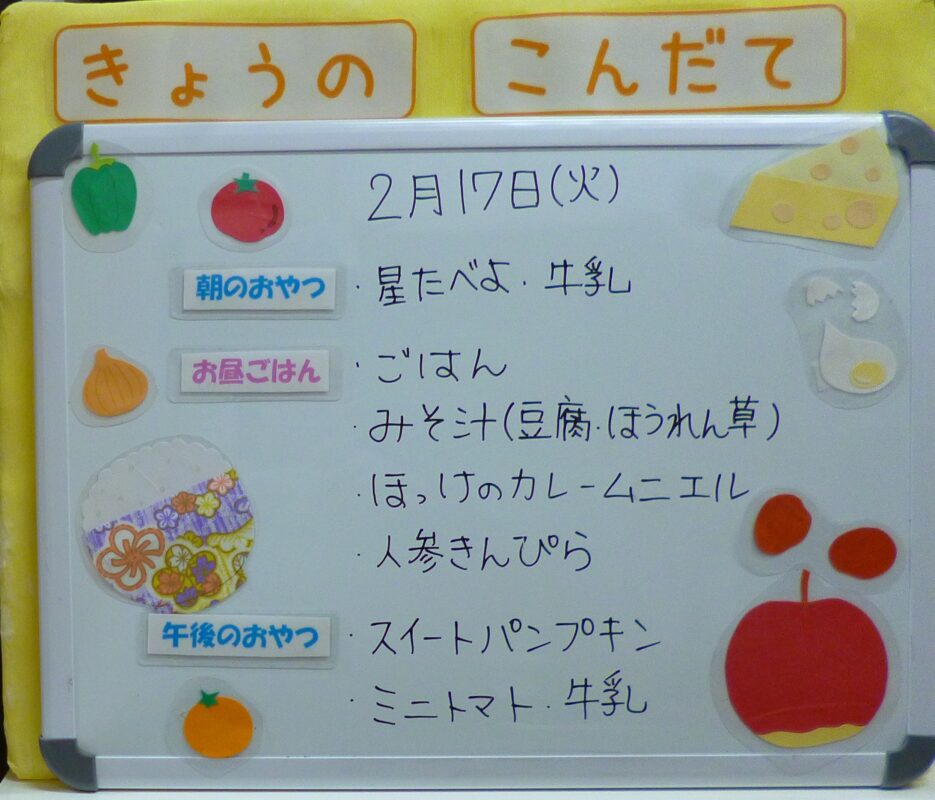 きょうの こんだて
2月17日(火)
朝のおやつ ・星たべよ・牛乳
お昼ごはん ・ごはん
・みそ汁(豆腐・ほうれん草)
・ほっけのカレームニエル
・人参きんぴら
午後のおやつ ・スイートパンプキン
・ミニトマト・牛乳